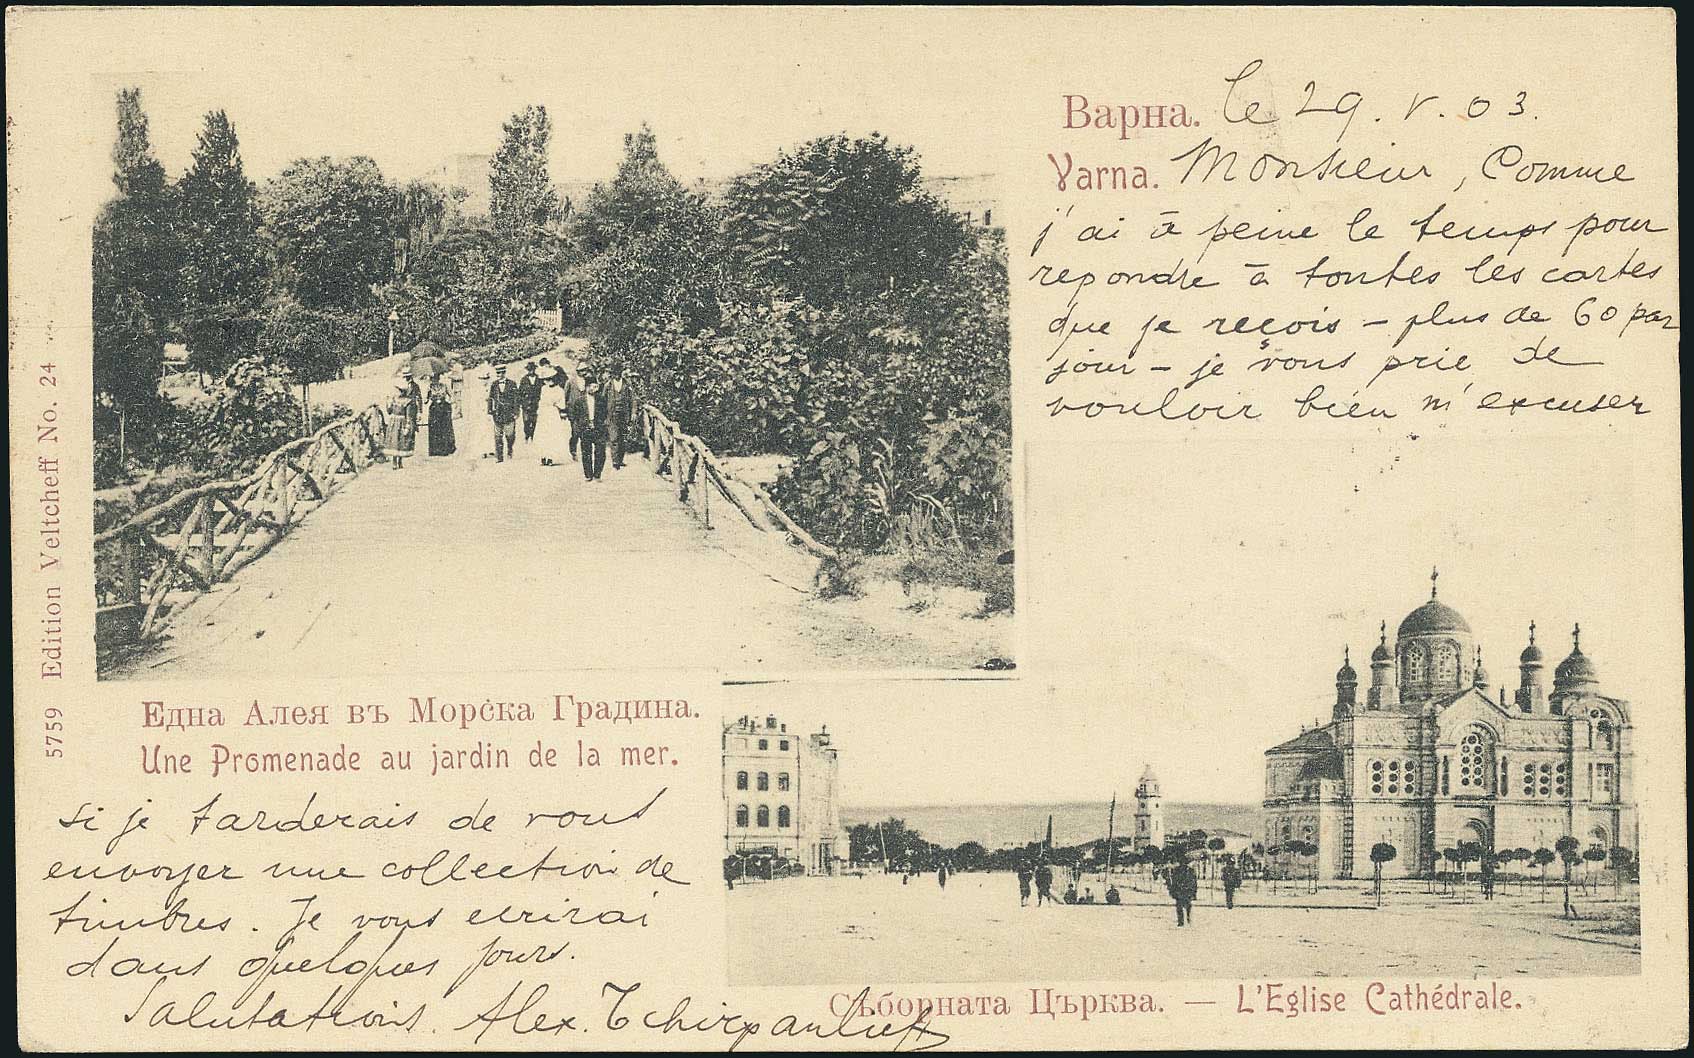 Варна. le 29. V. 03.
Varna. Monsieur, Comme
j'ai à peine le temps pour
repondre à toutes les cartes
que je reçois – plus de 60 par
jour – je vous prie de
vouloir bien m'excuser
5759 Edition Veltcheff No. 24
Една Алея въ Морска Градина.
Une Promenade au jardin de la mer.
si je tarderais de vous
envoyer une collection de
timbres. Je vous ecrirai
dans quelques jours.
Salutations. Alex.
Съборната Църква. — L'Eglise Cathédrale.